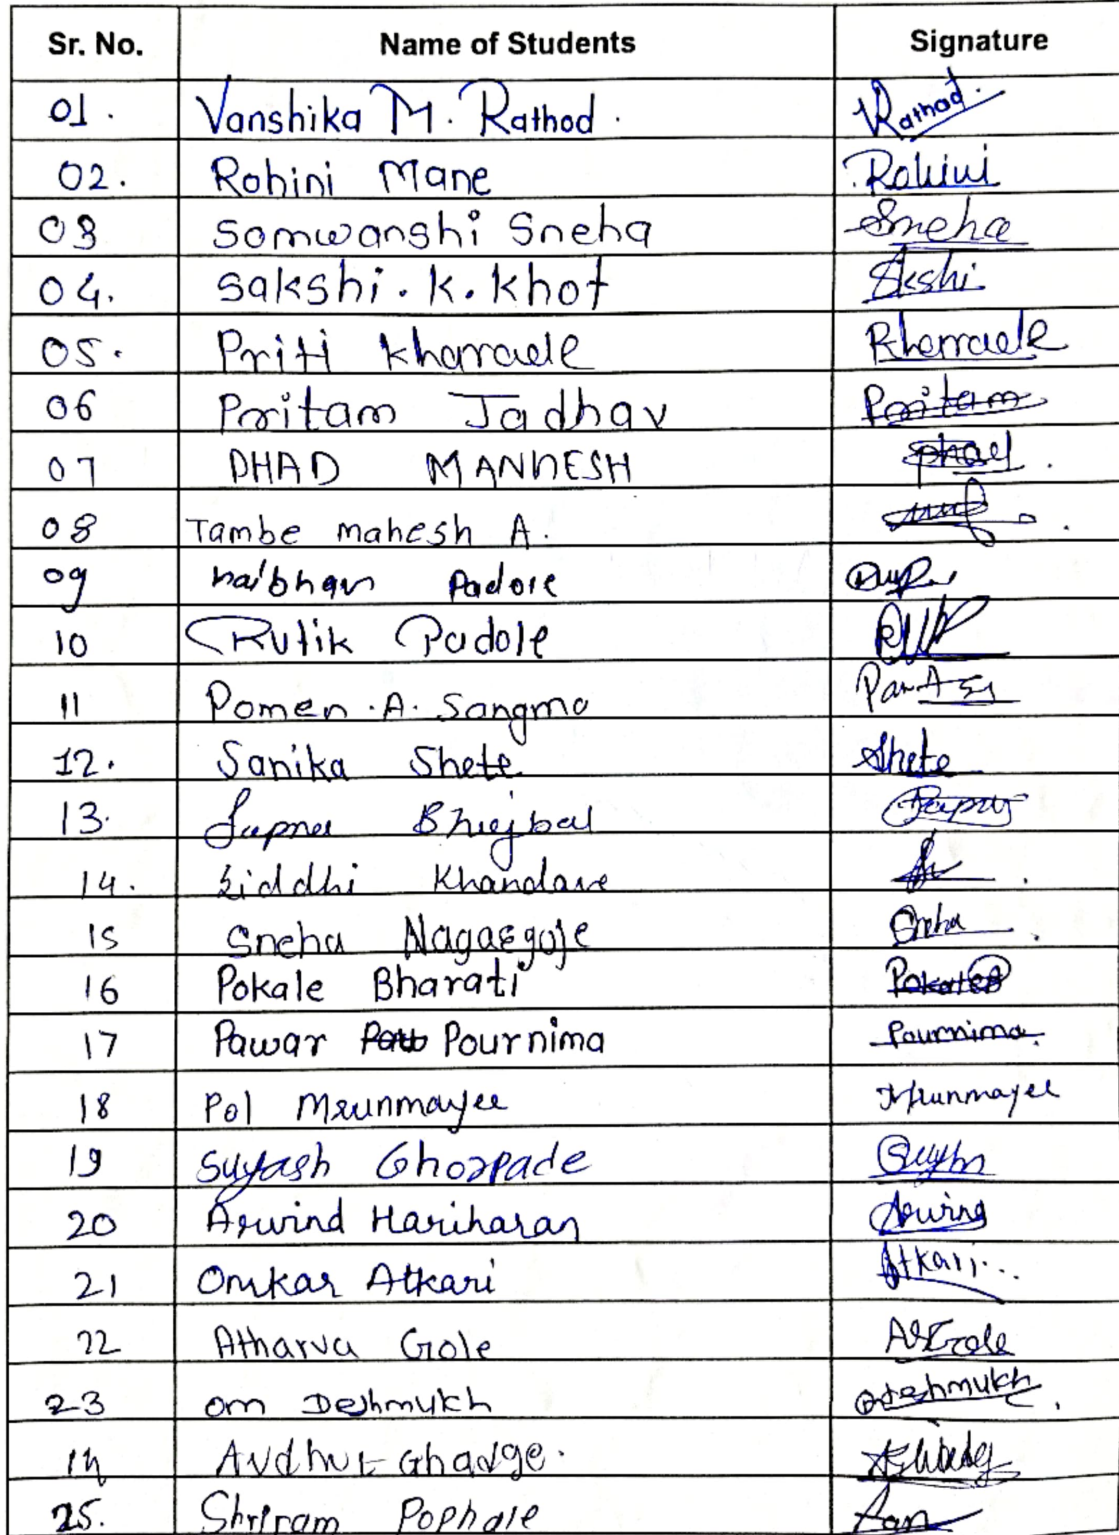 Sr. No. Name of Students Signature
01. Vanshika M. Rathod. Rathod.
02. Rohini Mane Rohini
03 Somwanshi Sneha Sneha
04. Sakshi. K. Khot Skshi
05. Priti Kharade Kharade
06 Pritam Jadhav Pritam
07 DHAD MANNESH Dhad.
08 Tambe mahesh A.
09 Vaibhav Padole
10 Rutik Padole
11 Pomen. A. Sangma
12. Sanika Shete Shete
13. Sapna Bhujbal
14. Siddhi Khandare
15 Sneha Nagargoje Sneha
16 Pokale Bharati Pokale
17 Pawar Pournima Pournima.
18 Pol Mrunmayee Mrunmayee
19 Suyash Ghorpade
20 Arwind Hariharan Arwind
21 Omkar Atkari Atkari...
22 Atharva Gole Gole
23 Om Deshmukh Deshmukh.
Avdhut Ghadge.
25. Shriram Pophale